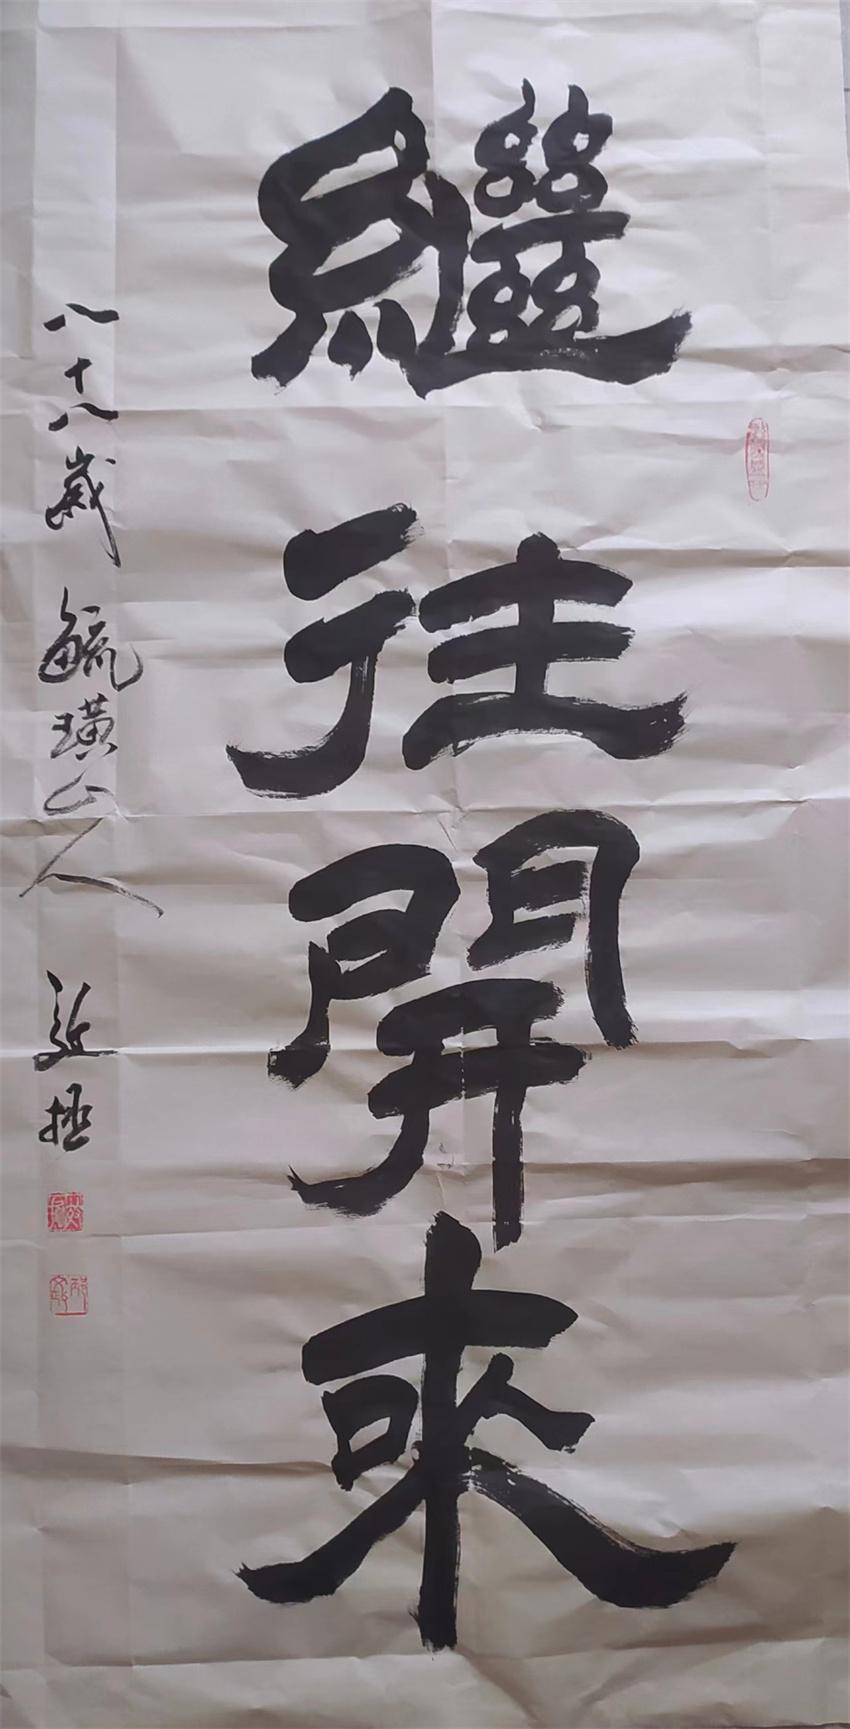 繼往開來
八十八歲 毓璜山人